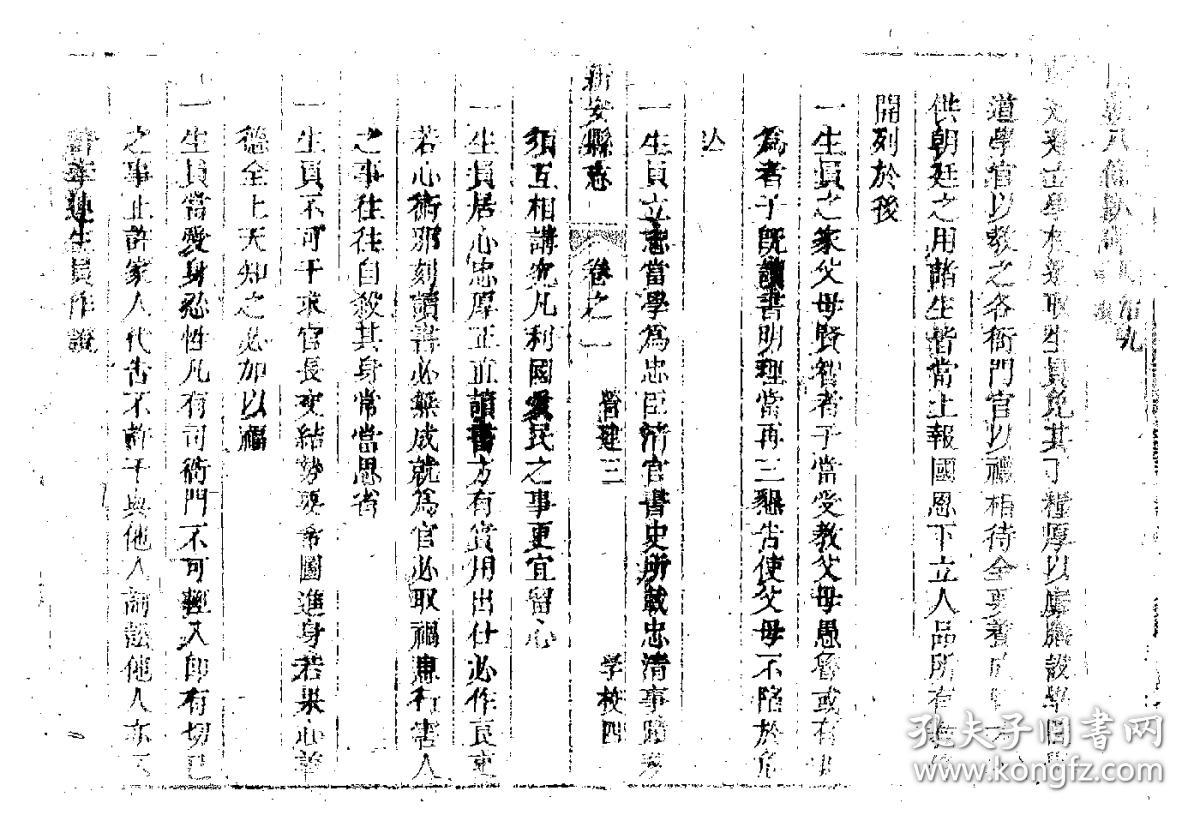 九
立學校選取生員免其丁糧厚以廩膳設學
道學官以教之各衙門官以禮相待全要養成
供朝廷之用諸生皆當上報國恩下立人品所有
開列於後
一生員之家父母賢智者子當受教父母愚魯或有非
為者子既讀書明理當再三懇告使父母不陷於危
亡
一生員立志當學為忠臣清官書史所載忠清事蹟務
新安縣志 卷之一 營建三 學校四
須互相講究凡利國愛民之事更宜留心
一生員居心忠厚正直讀書方有實用出仕必作良吏
若心術邪刻讀書必無成就為官必取禍患行害人
之事往往自殺其身常當思省
一生員不可干求官長交結勢要希圖進身若果心善
德全上天知之必加以福
一生員當愛身忍性凡有司衙門不可輕入即有切己
之事止許家人代告不許干與他人詞訟他人亦不
許牽連生員作證
孔夫子旧书网
www.kongfz.com